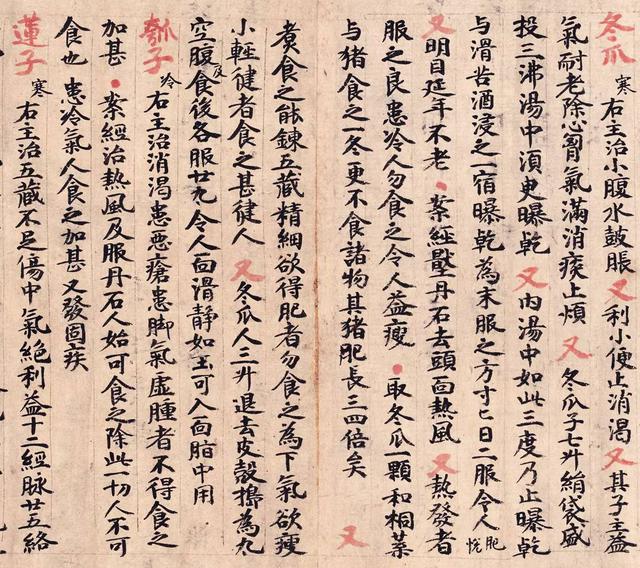 冬瓜 寒 右主治小腹水鼓脹 又利小便止消渴 又其子主益
氣耐老除心胷氣滿消痰止煩 又 冬瓜子七升絹袋盛
投三沸湯中湏臾曝乾 又内湯中如此三度乃止曝乾
与清苦酒浸之一宿曝乾為末服之方寸匕日二服令人肥悦
又明目延年不老 案經壓丹石去頭面熱風 又熱發者
服之良患冷人勿食之令人益瘦 取冬瓜一顆和桐葉
与猪食之一冬更不食諸物其猪肥長三四倍矣 又
煑食之能鍊五藏精細欲得肥者勿食之為下氣欲瘦
小輕健者食之甚健人 又冬瓜人三升退去皮殼擣為丸
空腹及食後各服廿丸令人面滑静如玉可入面脂中用
瓠子 冷 右主治消渴患悪瘡患脚氣虚腫者不得食之
加甚 案經治熱風及服丹石人始可食之除此一切人不可
食也 患冷氣人食之加甚又發固疾
蓮子 寒 右主治五藏不足傷中氣絶利益十二經脉廿五絡